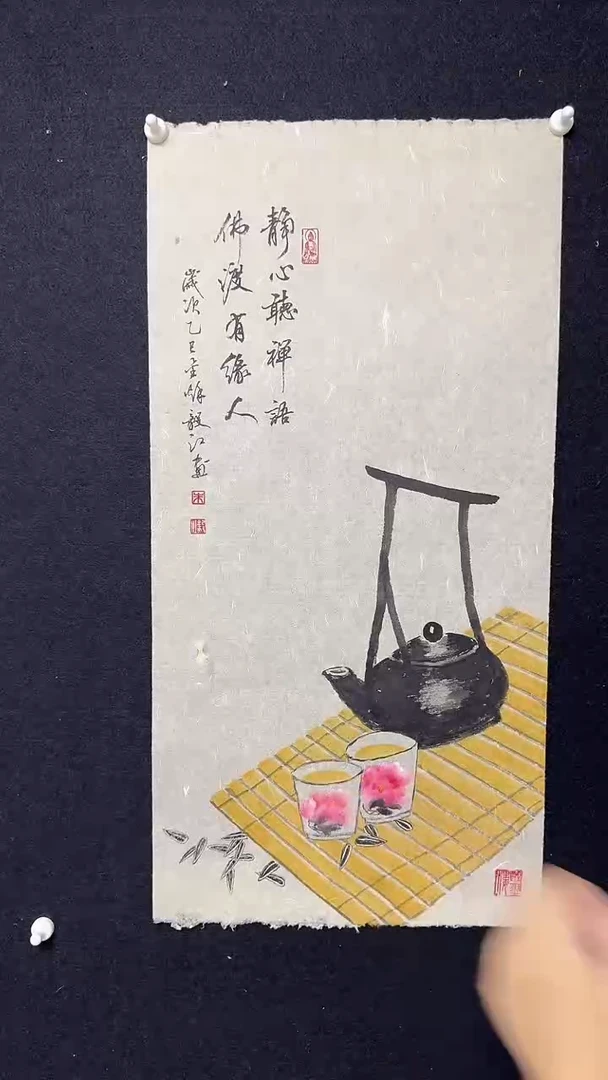 静心聽禅語
佛渡有緣人
歲次乙巳金秋毅江畫